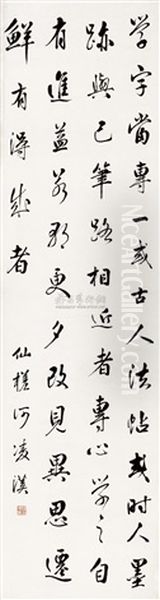 学字当专一或古人法帖或时人墨
跡與己筆路相近者專心学之自
有進益若朝更夕改見異思遷
鮮有得成者
仙槎何凌漢